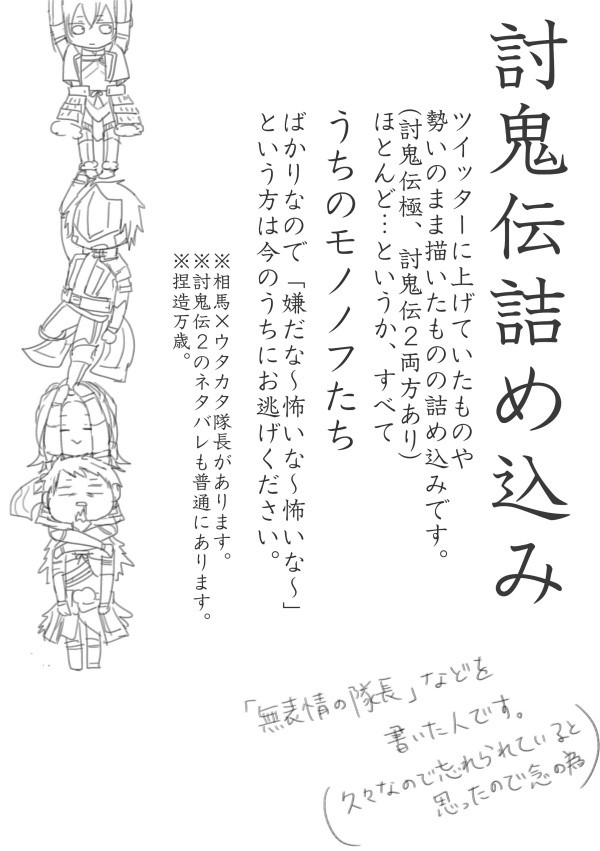 討鬼伝詰め込み
ツイッターに上げていたものや
勢いのまま描いたものの詰め込みです。
(討鬼伝極、討鬼伝2両方あり)
ほとんど…というか、すべて
うちのモノノフたち
ばかりなので「嫌だな～怖いな～怖いな～」
という方は今のうちにお逃げください。
※相馬×ウタカタ隊長があります。
※討鬼伝2のネタバレも普通にあります。
※捏造万歳。
「無表情の隊長」などを
書いた人です。
(久々なので忘れられていると
思ったので念の為)